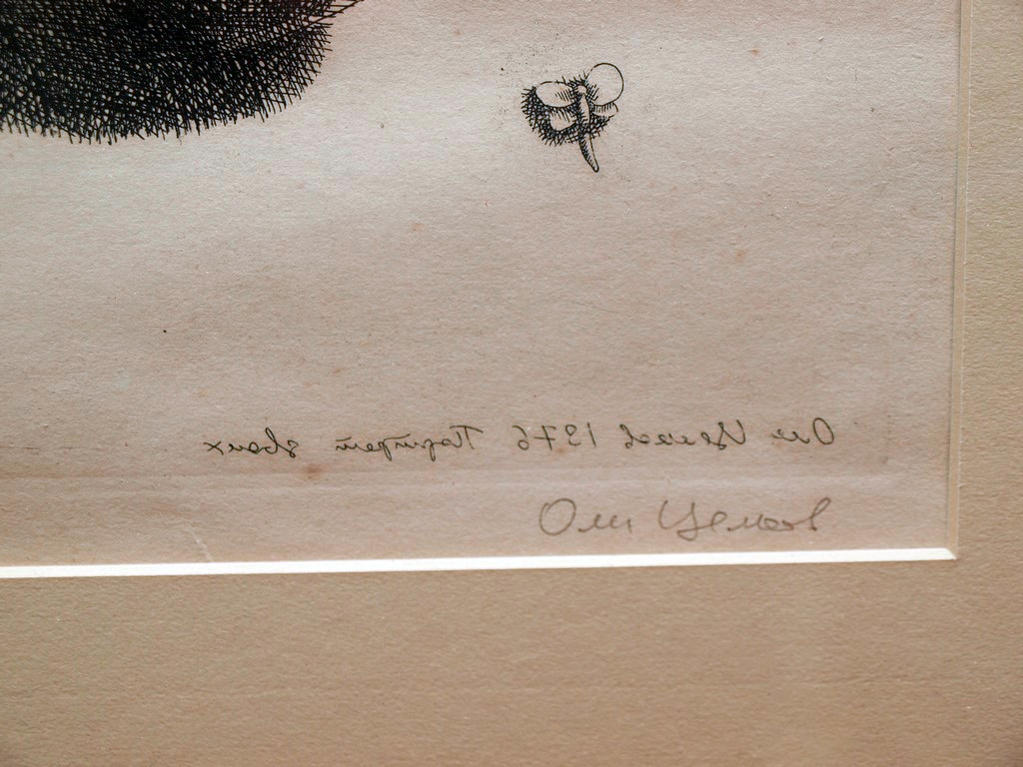 Олег Целков 1976 Портрет двоих
Олег Целков